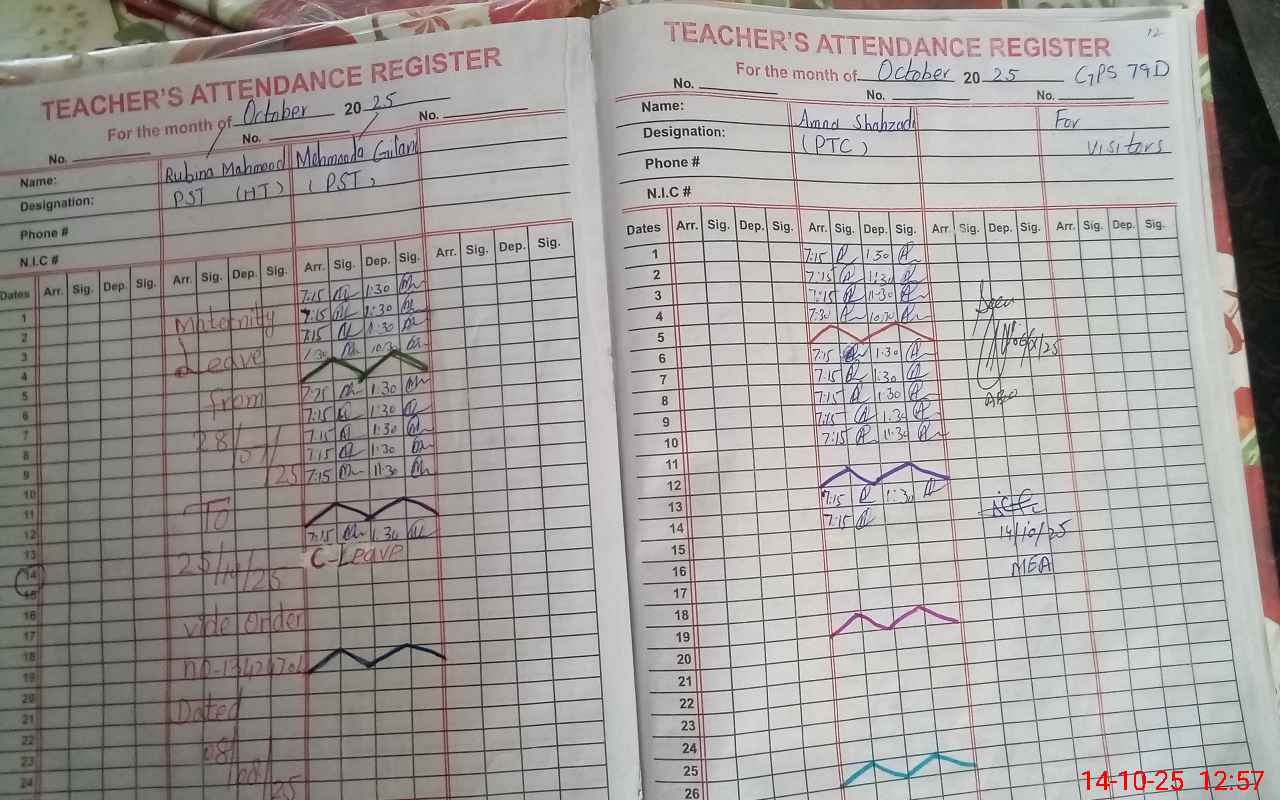 TEACHER'S ATTENDANCE REGISTER
For the month of October 20 25
No. No. No.
Name: Rubina Mahmood Mehmooda Gilani
Designation: PST (HT) (PST)
Phone #
N.I.C #
Dates Arr. Sig. Dep. Sig. Arr. Sig. Dep. Sig. Arr. Sig. Dep. Sig. Arr. Sig. Dep. Sig.
1 7:15 1:30
2 7:15 1:30
3 7:15 1:30
4 1:30 10:30
5
6 7:25 1:30
7 7:15 1:30
8 7:15 1:30
9 7:15 1:30
10 7:15 11:30
11
12
13 7:15 1:30
14 C-Leave
15
16
17
18
19
20
21
22
23
24
Maternity
Leave
from
28/07/25
To
25/10/25
vide order
Dated
08/08/25
12
TEACHER'S ATTENDANCE REGISTER
For the month of October 20 25 GPS 79D
No. No. No.
Name: Amad Shahzadi For
Designation: (PTC) visitors
Phone #
N.I.C #
Dates Arr. Sig. Dep. Sig. Arr. Sig. Dep. Sig. Arr. Sig. Dep. Sig. Arr. Sig. Dep. Sig.
1 7:15 1:30
2 7:15 1:30
3 7:15 11:30
4 7:30 10:30
5
6 7:15 1:30
7 7:15 1:30
8 7:15 1:30
9 7:15 1:30
10 7:15 11:30
11
12
13 7:15 1:30
14 7:15
15
16
17
18
19
20
21
22
23
24
25
26
Seen
14/10/25
MEA
14-10-25 12:57